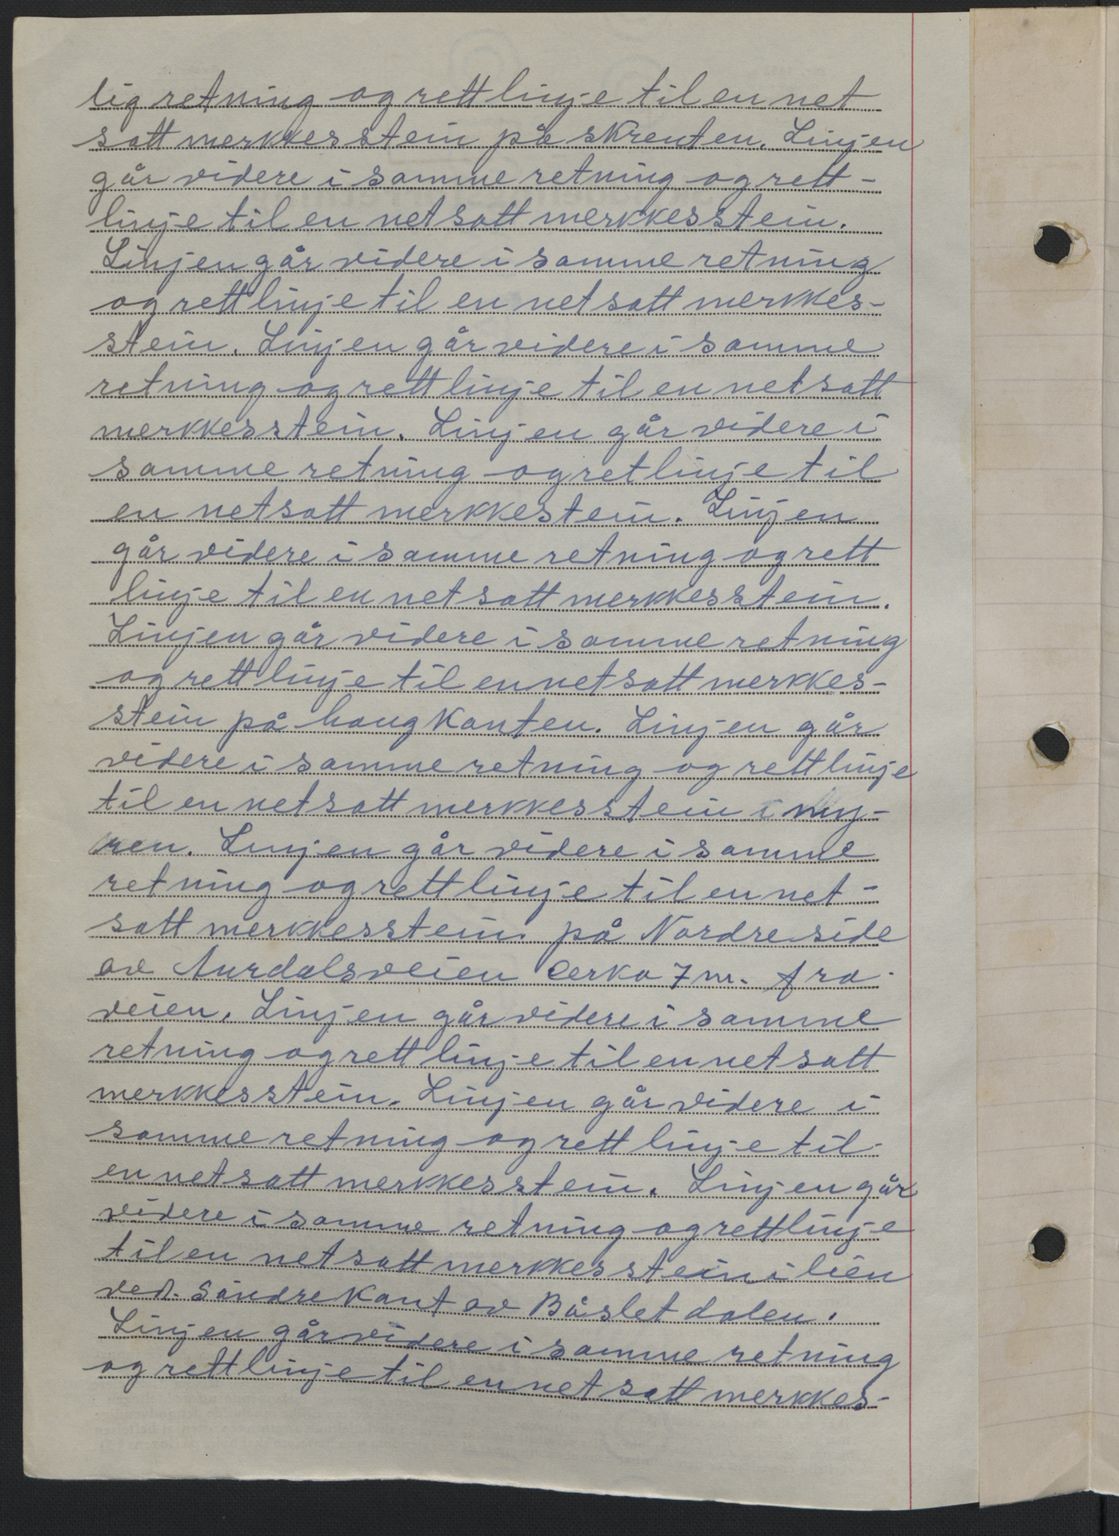 lig retning og rett linje til en net
satt merkkesstein på skrenten. Linjen
går videre i samme retning og rett-
linje til en netsatt merkkesstein.
Linjen går videre i samme retning
og rett linje til en netsatt merkkes-
stein. Linjen går videre i samme
retning og rett linje til en netsatt
merkkesstein. Linjen går videre i
samme retning og ret linje til
en netsatt merkkestein. Linjen
går videre i samme retning og rett
linje til en netsatt merkkesstein.
Linjen går videre i samme retning
og rett linje til en netsatt merkkes-
stein på haugkanten. Linjen går
videre i samme retning og rett linje
til en netsatt merkkesstein i my-
ren. Linjen går videre i samme
retning og rett linje til en net-
satt merkkesstein på Nordre side
av Aurdalsveien cerka 7 m. fra
veien. Linjen går videre i samme
retning og rett linje til en netsatt
merkkesstein. Linjen går videre i
samme retning og rett linje til
en netsatt merkkesstein. Linjen går
videre i samme retning og rett linje
til en netsatt merkkesstein i lien
ved. Søndre Kant av Båslet dalen.
Linjen går videre i samme retning
og rett linje til en net satt merkkes-